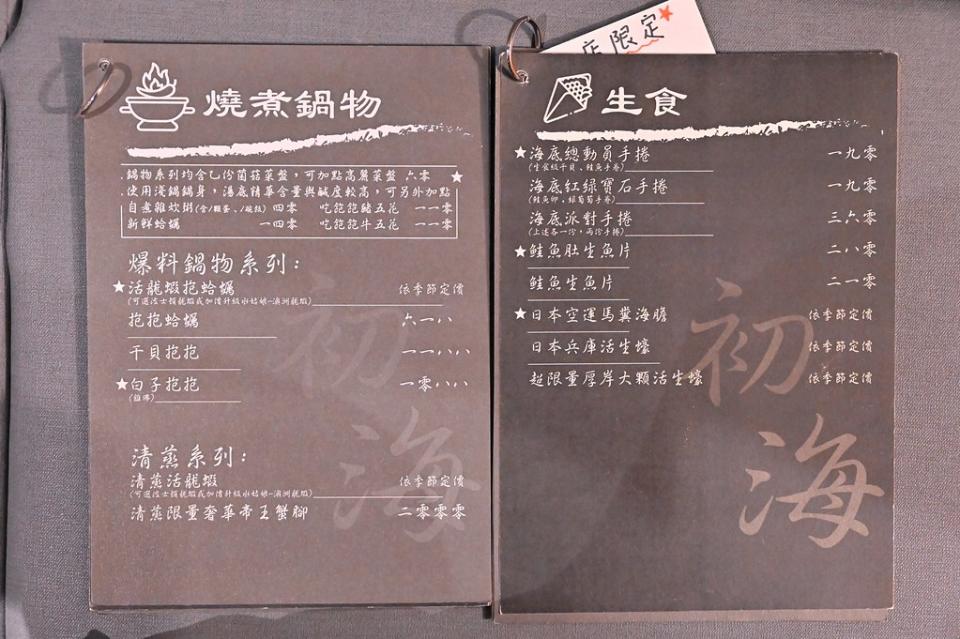 店限定
燒煮鍋物
.鍋物系列均含乙份菌菇菜盤，可加點高麗菜盤 六零
.使用淺鍋鍋身，湯底精華含量與鹹度較高，可另外加點
自煮雜炊粥(含1顆蛋、1碗飯) 四零 吃飽飽豬五花 一一零
新鮮蛤蠣 一四零 吃飽飽牛五花 一一零
爆料鍋物系列：
活龍蝦抱蛤蠣 依季節定價
(可選波士頓龍蝦或加價升級水姑娘-澳洲龍蝦)
抱抱蛤蠣 六一八
干貝抱抱 一一八八
白子抱抱 一零八八
清蒸系列：
清蒸活龍蝦 依季節定價
(可選波士頓龍蝦或加價升級水姑娘-澳洲龍蝦)
清蒸限量奢華帝王蟹腳 二零零零
生食
海底總動員手捲 一九零
(生食級干貝、鮭魚手卷)
海底紅綠寶石手捲 一九零
(鮭魚卵，綠葡萄手卷)
海底派對手捲 三六零
(上述各一份，兩份手捲)
鮭魚肚生魚片 二八零
鮭魚生魚片 二一零
日本空運馬糞海膽 依季節定價
日本兵庫活生蠔 依季節定價
超限量厚岸大顆活生蠔 依季節定價
初
海
初
海